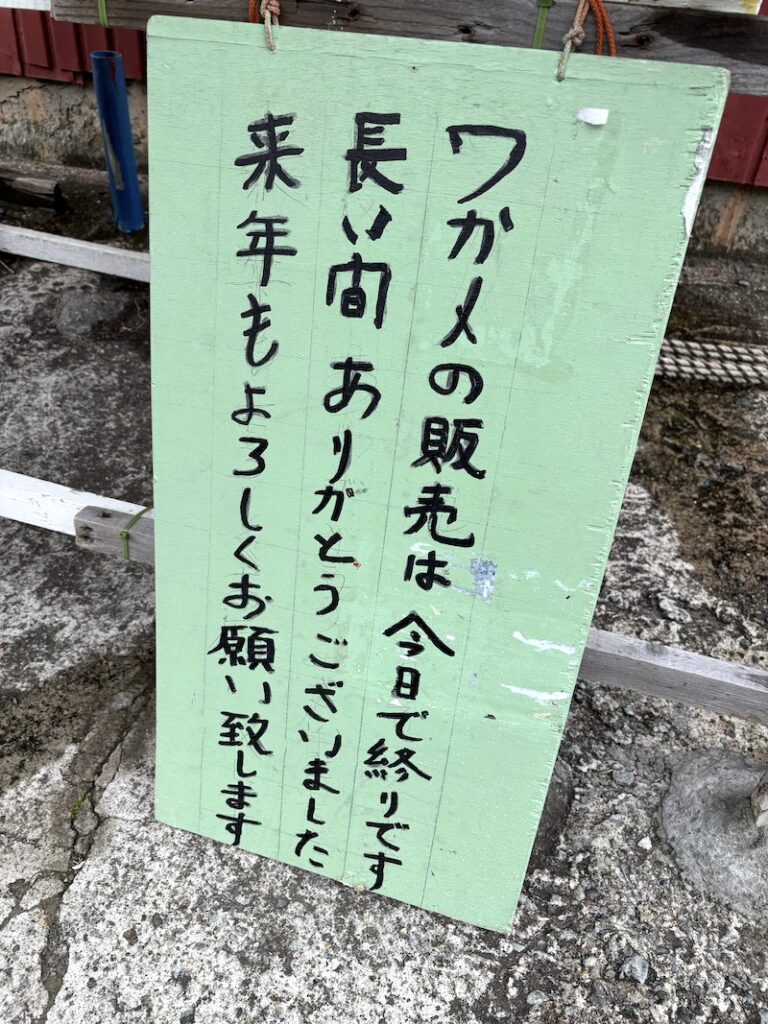 ワカメの販売は今日で終りです
長い間ありがとうございました
来年もよろしくお願い致します